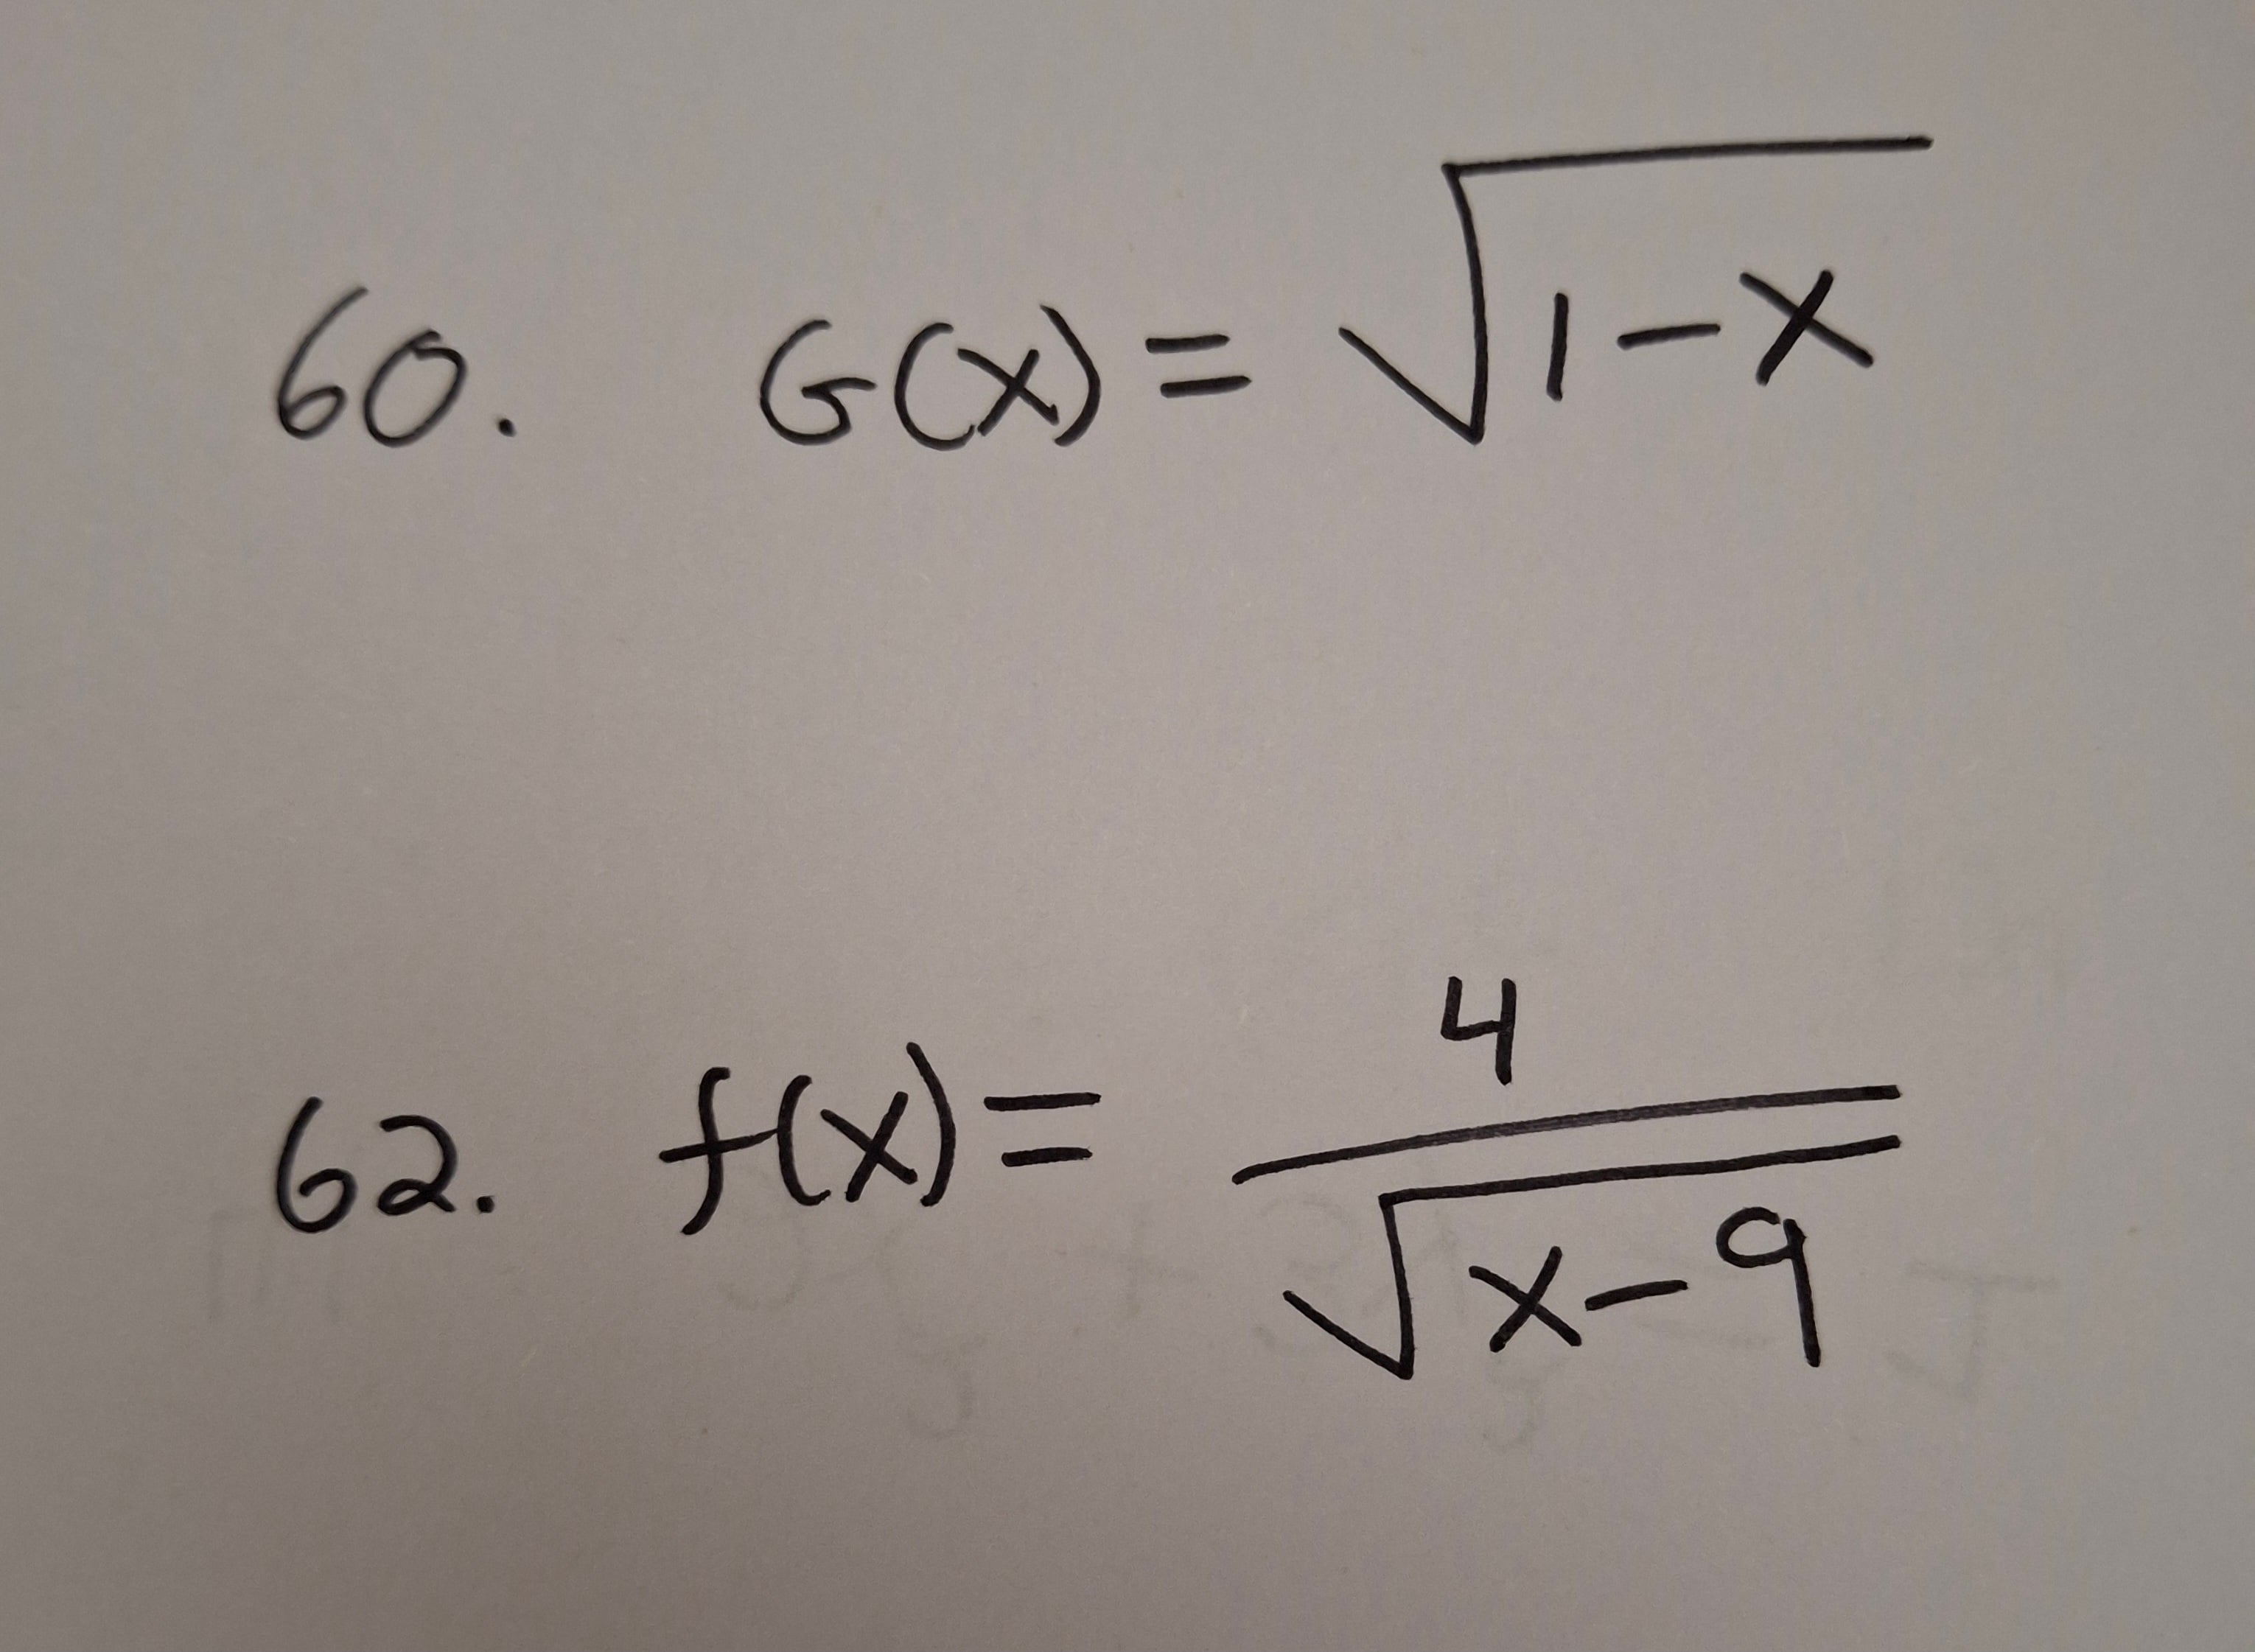 60. G(x) = √(1-x)
62. f(x) = 4/√(x-9)